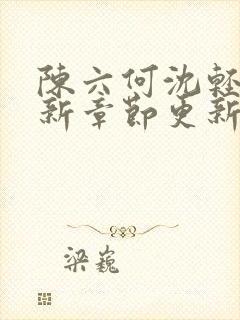 陳六何沈輕
新章節更新
梁巍